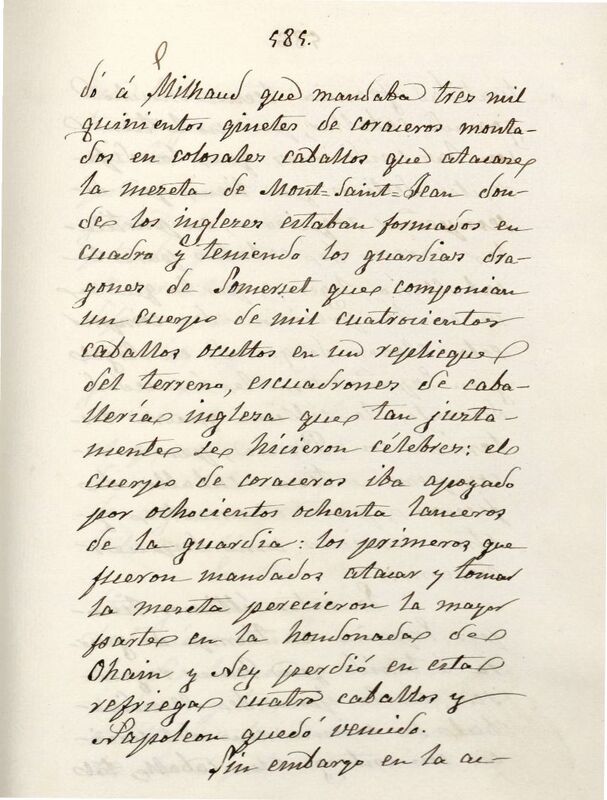 585.
dó á Milhaud que mandaba tres mil
quinientos ginetes de coraceros monta-
dos en colosales caballos que atacare
la meseta de Mont=Saint=Jean don-
de los ingleses estaban formados en
cuadro y teniendo los guardias dra-
gones de Somerset que componian
un cuerpo de mil cuatrocientos
caballos ocultos en un repliegue
del terreno, escuadrones de caba-
llería inglesa que tan justa-
mente se hicieron célebres: el
cuerpo de coraceros iba apoyado
por ochocientos ochenta lanceros
de la guardia: los primeros que
fueron mandados atacar y tomar
la meseta perecieron la mayor
parte en la hondonada de
Ohain y Ney perdió en esta
refriega cuatro caballos y
Napoleon quedó vencido.
Sin embargo en la ac-